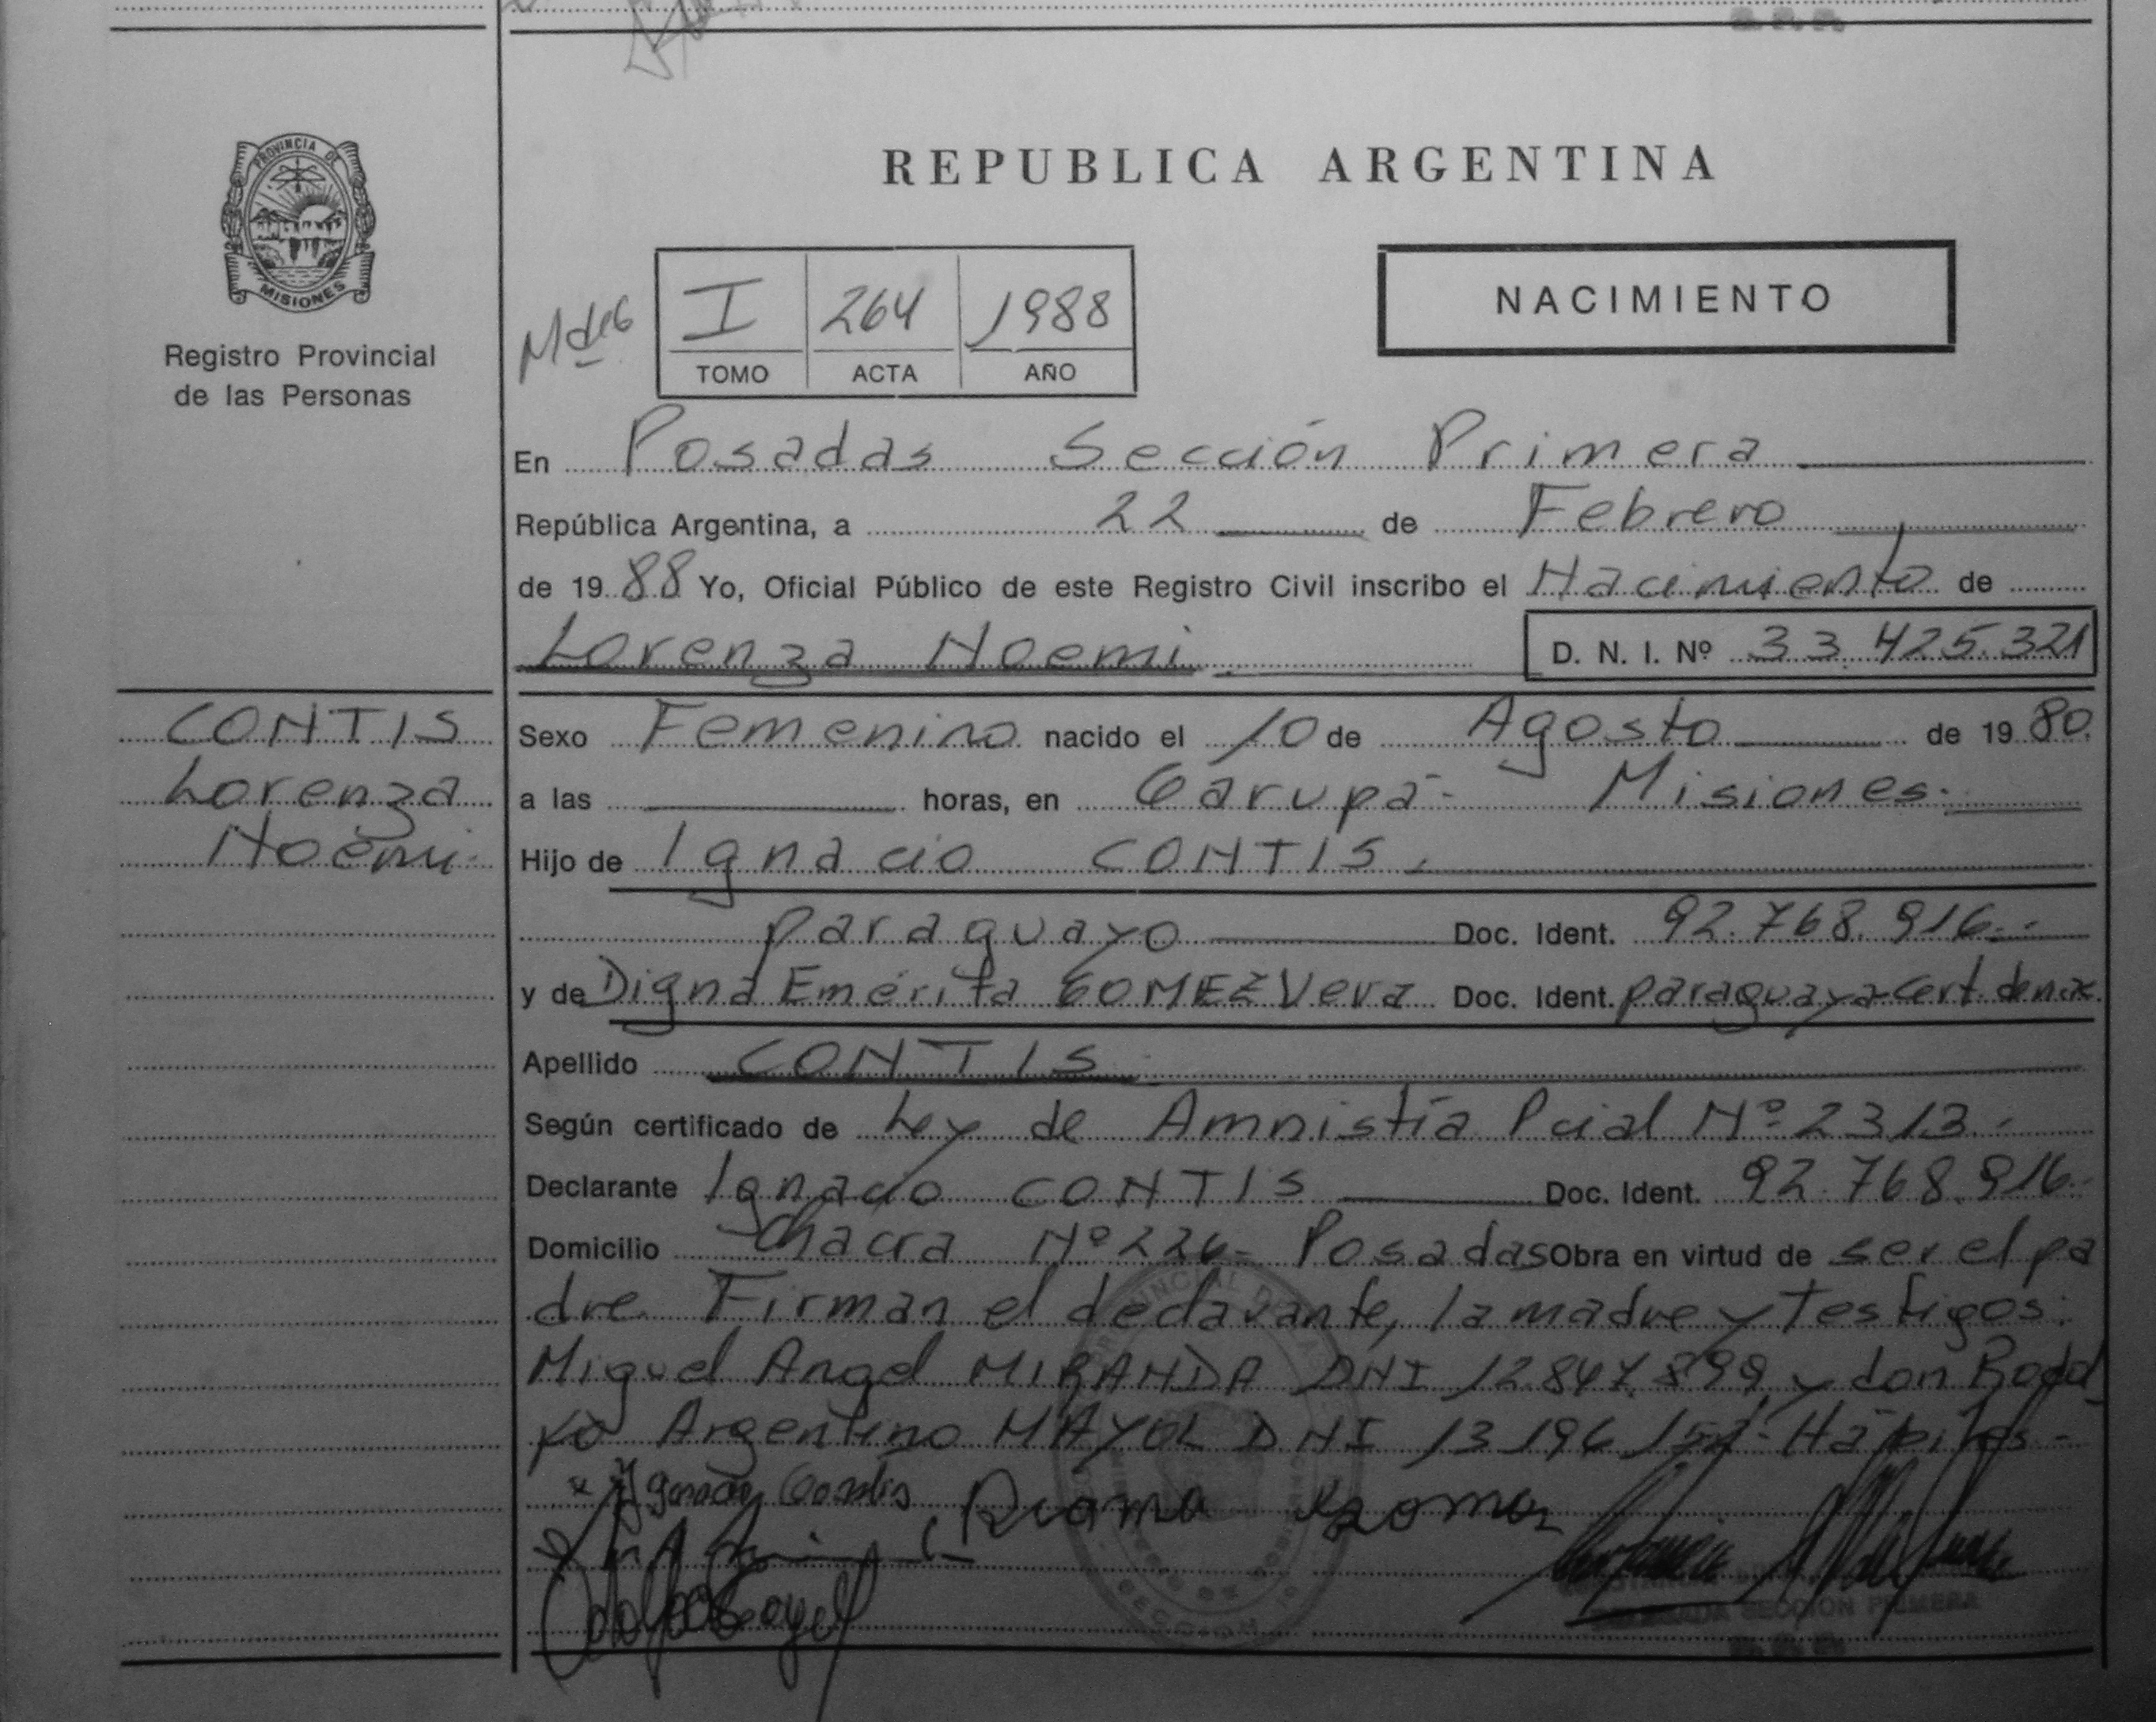 PROVINCIA DE
MISIONES
Registro Provincial
de las Personas
REPUBLICA ARGENTINA
I 264 1988
TOMO ACTA AÑO
NACIMIENTO
En Posadas Sección Primera
República Argentina, a 22 de Febrero
de 19 88 Yo, Oficial Público de este Registro Civil inscribo el Nacimiento de
Lorenza Noemi D. N. I. Nº 33.425.321
CONTIS
Lorenza
Noemi
Sexo Femenino nacido el 10 de Agosto de 19 80
a las horas, en Garupá - Misiones.
Hijo de Ignacio CONTIS.
paraguayo Doc. Ident. 92.768.916.-
y de Digna Emérita GOMEZ Vera Doc. Ident. paraguaya cert. de nac.
Apellido CONTIS
Según certificado de Ley de Amnistía Pcial Nº 2313.-
Declarante Ignacio CONTIS Doc. Ident. 92.768.916.-
Domicilio Chacra Nº 226- Posadas Obra en virtud de ser el pa
dre. Firman el declarante, la madre y testigos:
Miguel Angel MIRANDA DNI 12.847.899 y don Rodol
fo Argentino MAYOL DNI 13.196.152- Hábiles-
SECCION PRIMERA